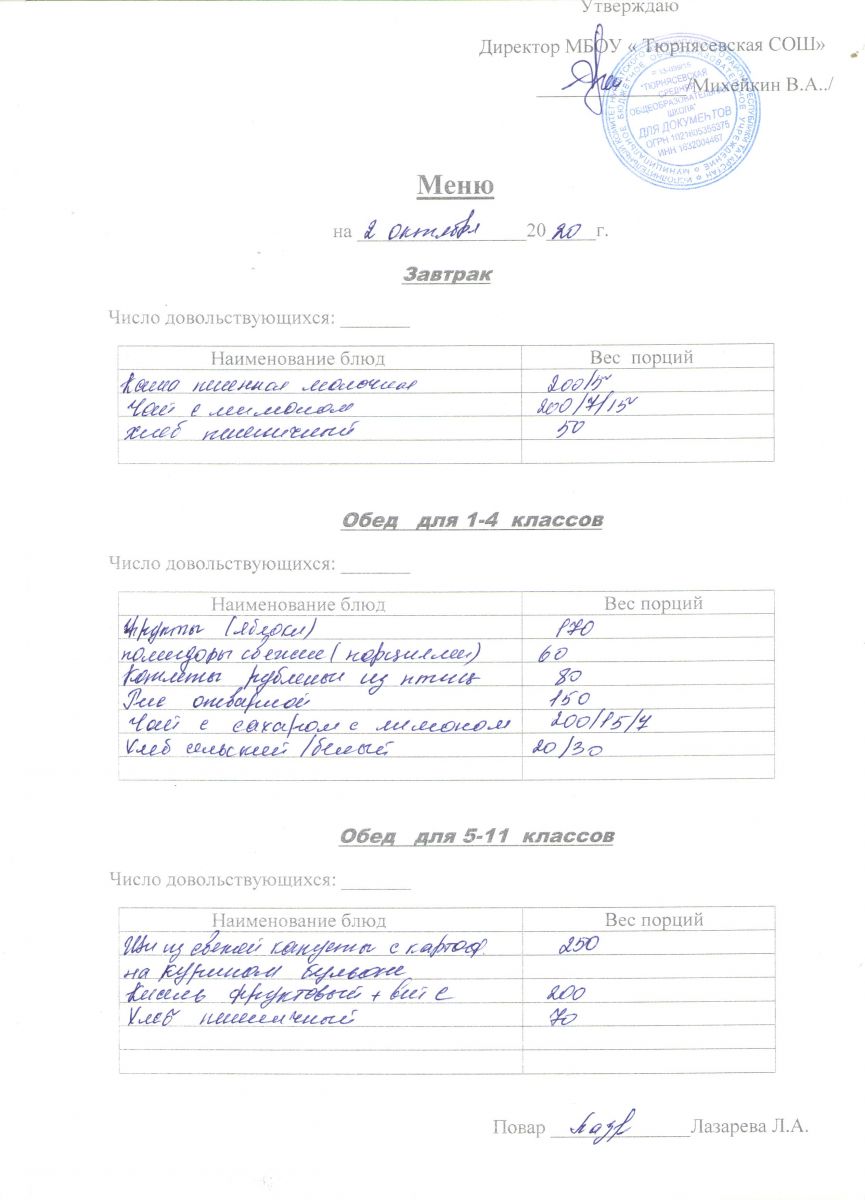 Утверждаю
Директор МБОУ « Тюрнясевская СОШ»
/Михейкин В.А../
"ТЮРНЯСЕВСКАЯ
СРЕДНЯЯ
ОБЩЕОБРАЗОВАТЕЛЬНАЯ
ШКОЛА"
ДЛЯ ДОКУМЕНТОВ
ОГРН 1021605355375
ИНН 1632004467
Меню
на 2 октября 2020 г.
Завтрак
Число довольствующихся: _______
Наименование блюд Вес порций
Каша пшенная молочная 200/5
Чай с лимоном 200/7/15
Хлеб пшеничный 50
Обед для 1-4 классов
Число довольствующихся: _______
Наименование блюд Вес порций
Фрукты (яблоки) 170
помидоры свежие (порциями) 60
Котлеты рубленые из птиц 80
Рис отварной 150
Чай с сахаром с лимоном 200/15/7
Хлеб сельский /белый 20/30
Обед для 5-11 классов
Число довольствующихся: _______
Наименование блюд Вес порций
Щи из свежей капусты с картоф. 250
на курином бульоне
Кисель фруктовый + вит С 200
Хлеб пшеничный 70
Повар Лазарева Л.А.